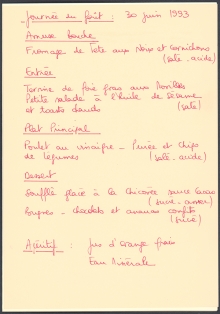 Journée en forêt : 30 juin 1993
Amuse bouche
Fromage de Tête aux Noix et Cornichons
(salé - acide)
Entrée
Terrine de foie frais aux Morilles
Petite salade à l'huile de Sésame
et toasts chauds (salé)
Plat Principal
Poulet au vinaigre - Purée et Chips
de légumes (salé - acide)
Dessert
Soufflé glacé à la Chicorée sauce Cacao
(sucré - amer)
- chocolats et ananas confits
(sucré)
Apéritif : Jus d'orange frais
Eau Minérale